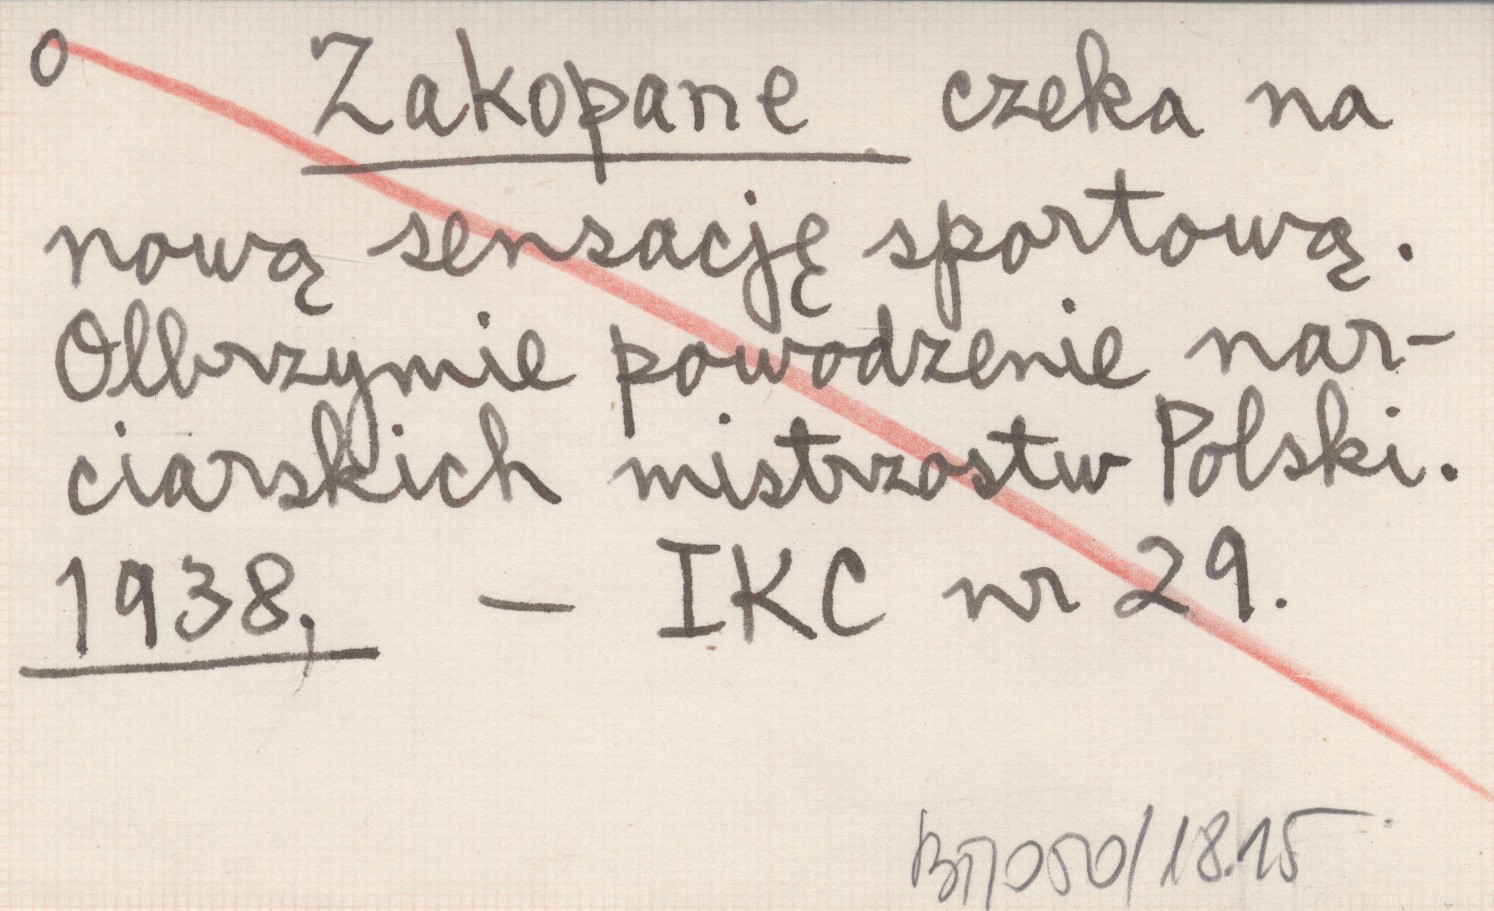 o Zakopane czeka na
nową sensację sportową.
Olbrzymie powodzenie nar-
ciarskich mistrzostw Polski.
1938, – IKC nr 29.